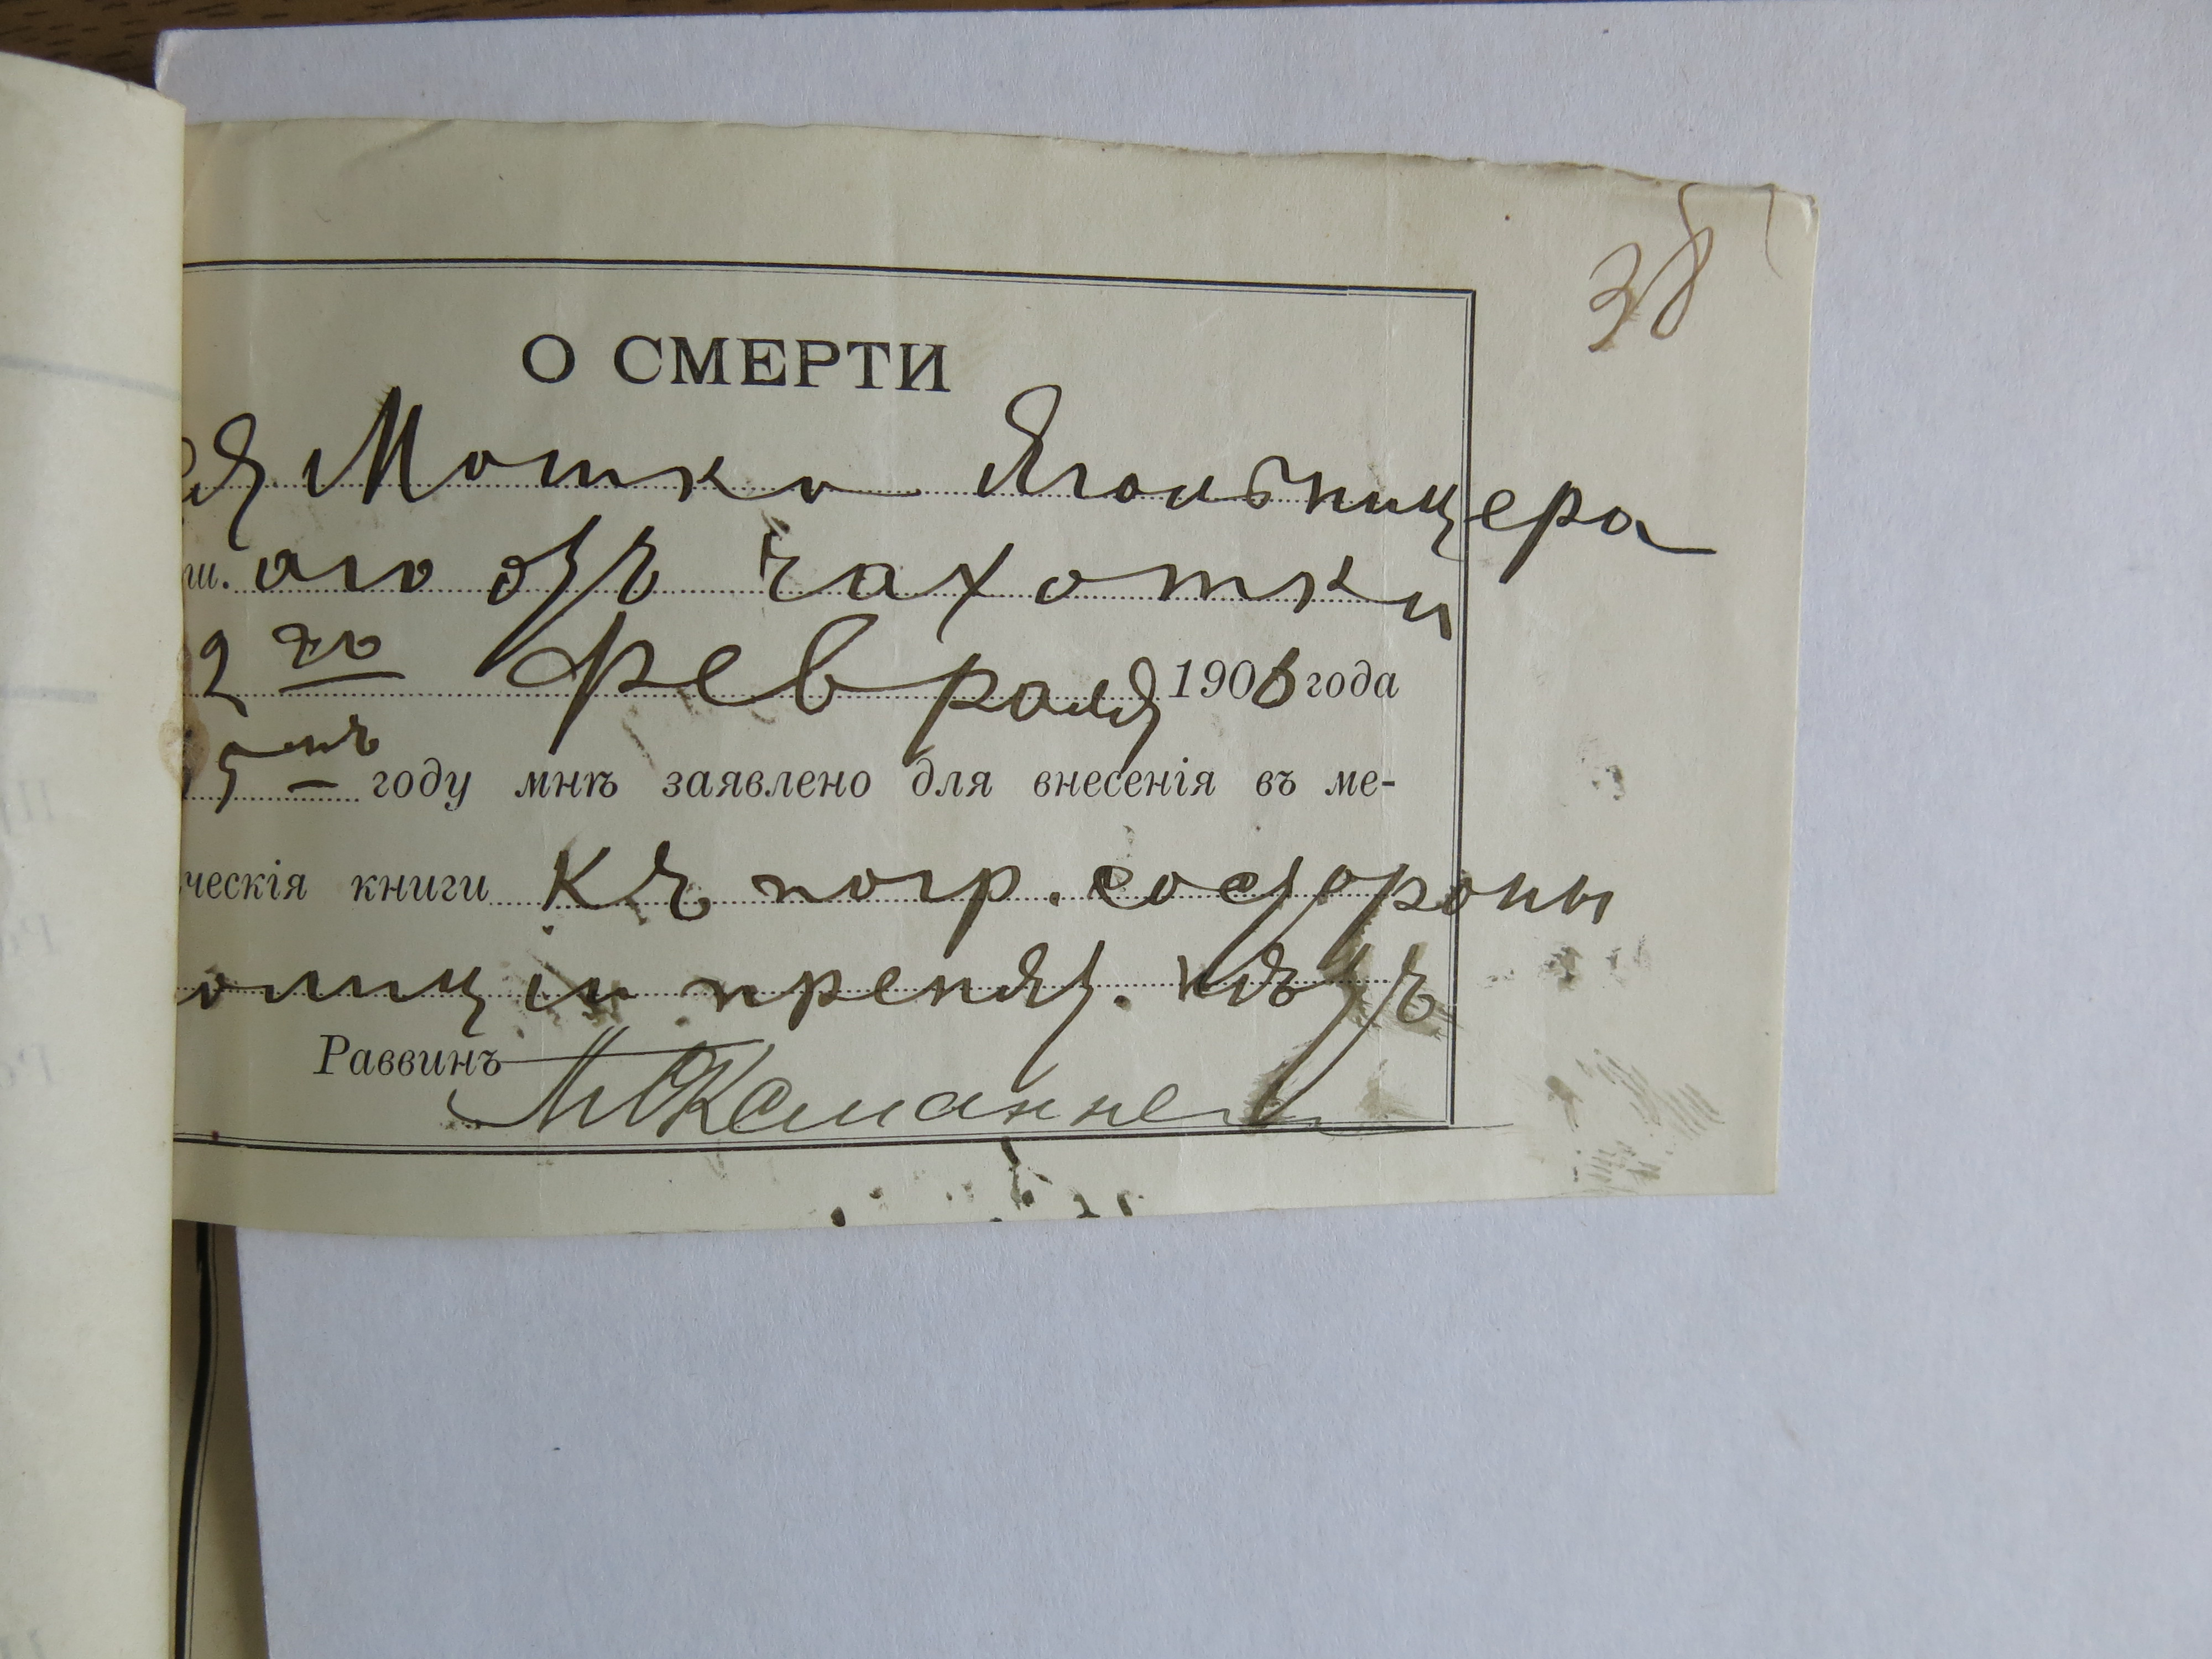 38
О СМЕРТИ
Мошко Ягольницера
ш. ого отъ чахотки
2 хъ февраля 1906 года
5 тъ году мнѣ заявлено для внесенія въ ме-
ческія книги Къ погр. со стороны
олиціи препят. нѣтъ
Раввинъ